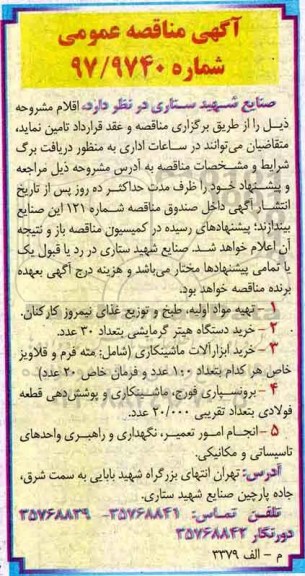 آگهی مناقصه عمومی
شماره ۹۷/۹۷۴۰
صنایع شهید ستاری در نظر دارد، اقلام مشروحه
ذیل را از طریق برگزاری مناقصه و عقد قرارداد تامین نماید،
متقاضیان می‌توانند در ساعات اداری به منظور دریافت برگ
شرایط و مشخصات مناقصه به آدرس مشروحه ذیل مراجعه
و پیشنهاد خود را ظرف مدت حداکثر ده روز پس از تاریخ
انتشار آگهی داخل صندوق مناقصه شماره ۱۲۱ این صنایع
بیندازند؛ پیشنهادهای رسیده در کمیسیون مناقصه باز و نتیجه
آن اعلام خواهد شد. صنایع شهید ستاری در رد یا قبول یک
یا تمامی پیشنهادها مختار می‌باشد و هزینه درج آگهی بعهده
برنده مناقصه خواهد بود.
۱ - تهیه مواد اولیه، طبخ و توزیع غذای نیمروز کارکنان.
۲ - خرید دستگاه هیتر گرمایشی بتعداد ۳۰ عدد.
۳ - خرید ابزارآلات ماشینکاری (شامل: مته فرم و قلاویز
خاص هر کدام بتعداد ۱۰۰ عدد و فرمان خاص ۲۰ عدد)
۴ - برونسپاری فورج، ماشینکاری و پوشش‌دهی قطعه
فولادی بتعداد تقریبی ۲۰/۰۰۰ عدد.
۵ - انجام امور تعمیر، نگهداری و راهبری واحدهای
تاسیساتی و مکانیکی.
آدرس: تهران انتهای بزرگراه شهید بابایی به سمت شرق،
جاده پارچین صنایع شهید ستاری.
تلفن تماس: ۳۵۷۶۸۸۴۱- ۳۵۷۶۸۸۳۹
دورنگار ۳۵۷۶۸۸۴۲
م - الف ۳۳۷۹